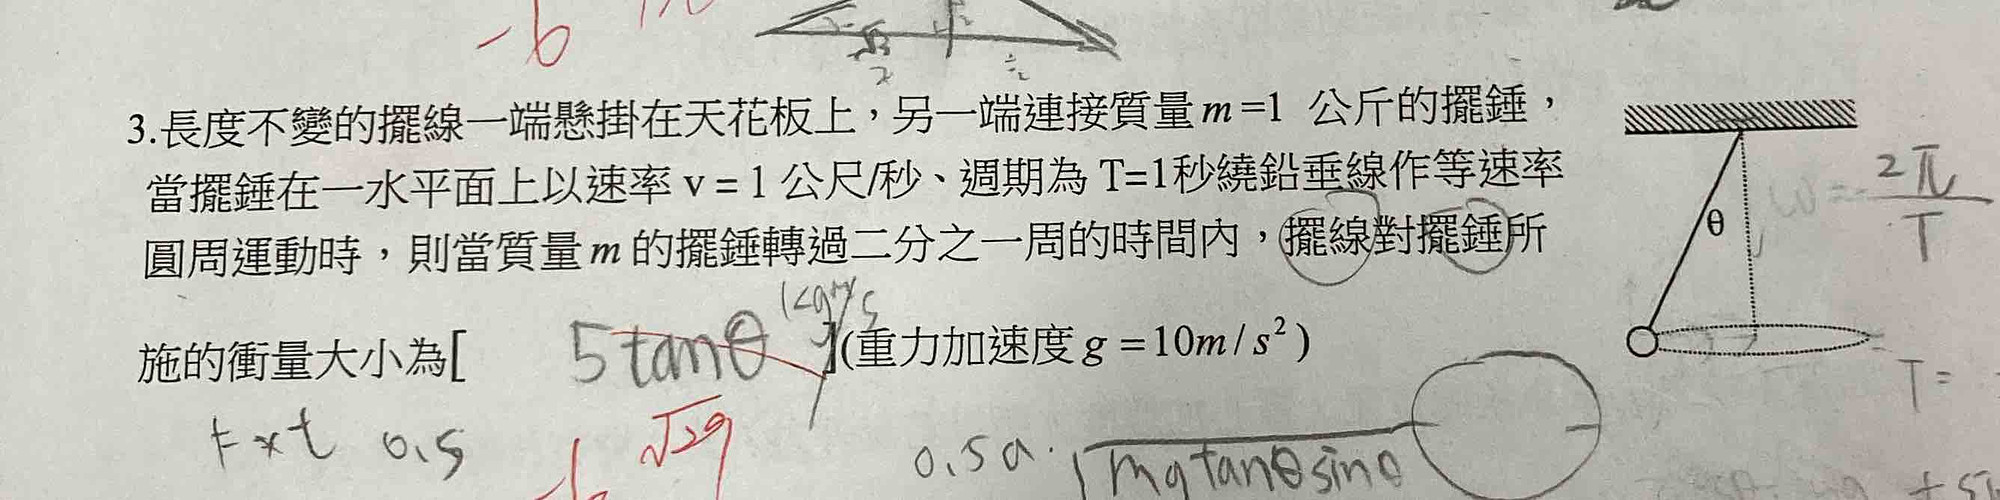 -6
√3/2
3.長度不變的擺線一端懸掛在天花板上，另一端連接質量 m =1 公斤的擺錘，
當擺錘在一水平面上以速率 v = 1 公尺/秒、週期為 T=1秒繞鉛垂線作等速率
圓周運動時，則當質量 m 的擺錘轉過二分之一周的時間內，擺線對擺錘所
施的衝量大小為[ 5tanθ kgm/s ](重力加速度 g =10m/s²)
θ
ω = 2π/T
F×t 0.5
√29
0.5a. √mgtanθsinθ
T=